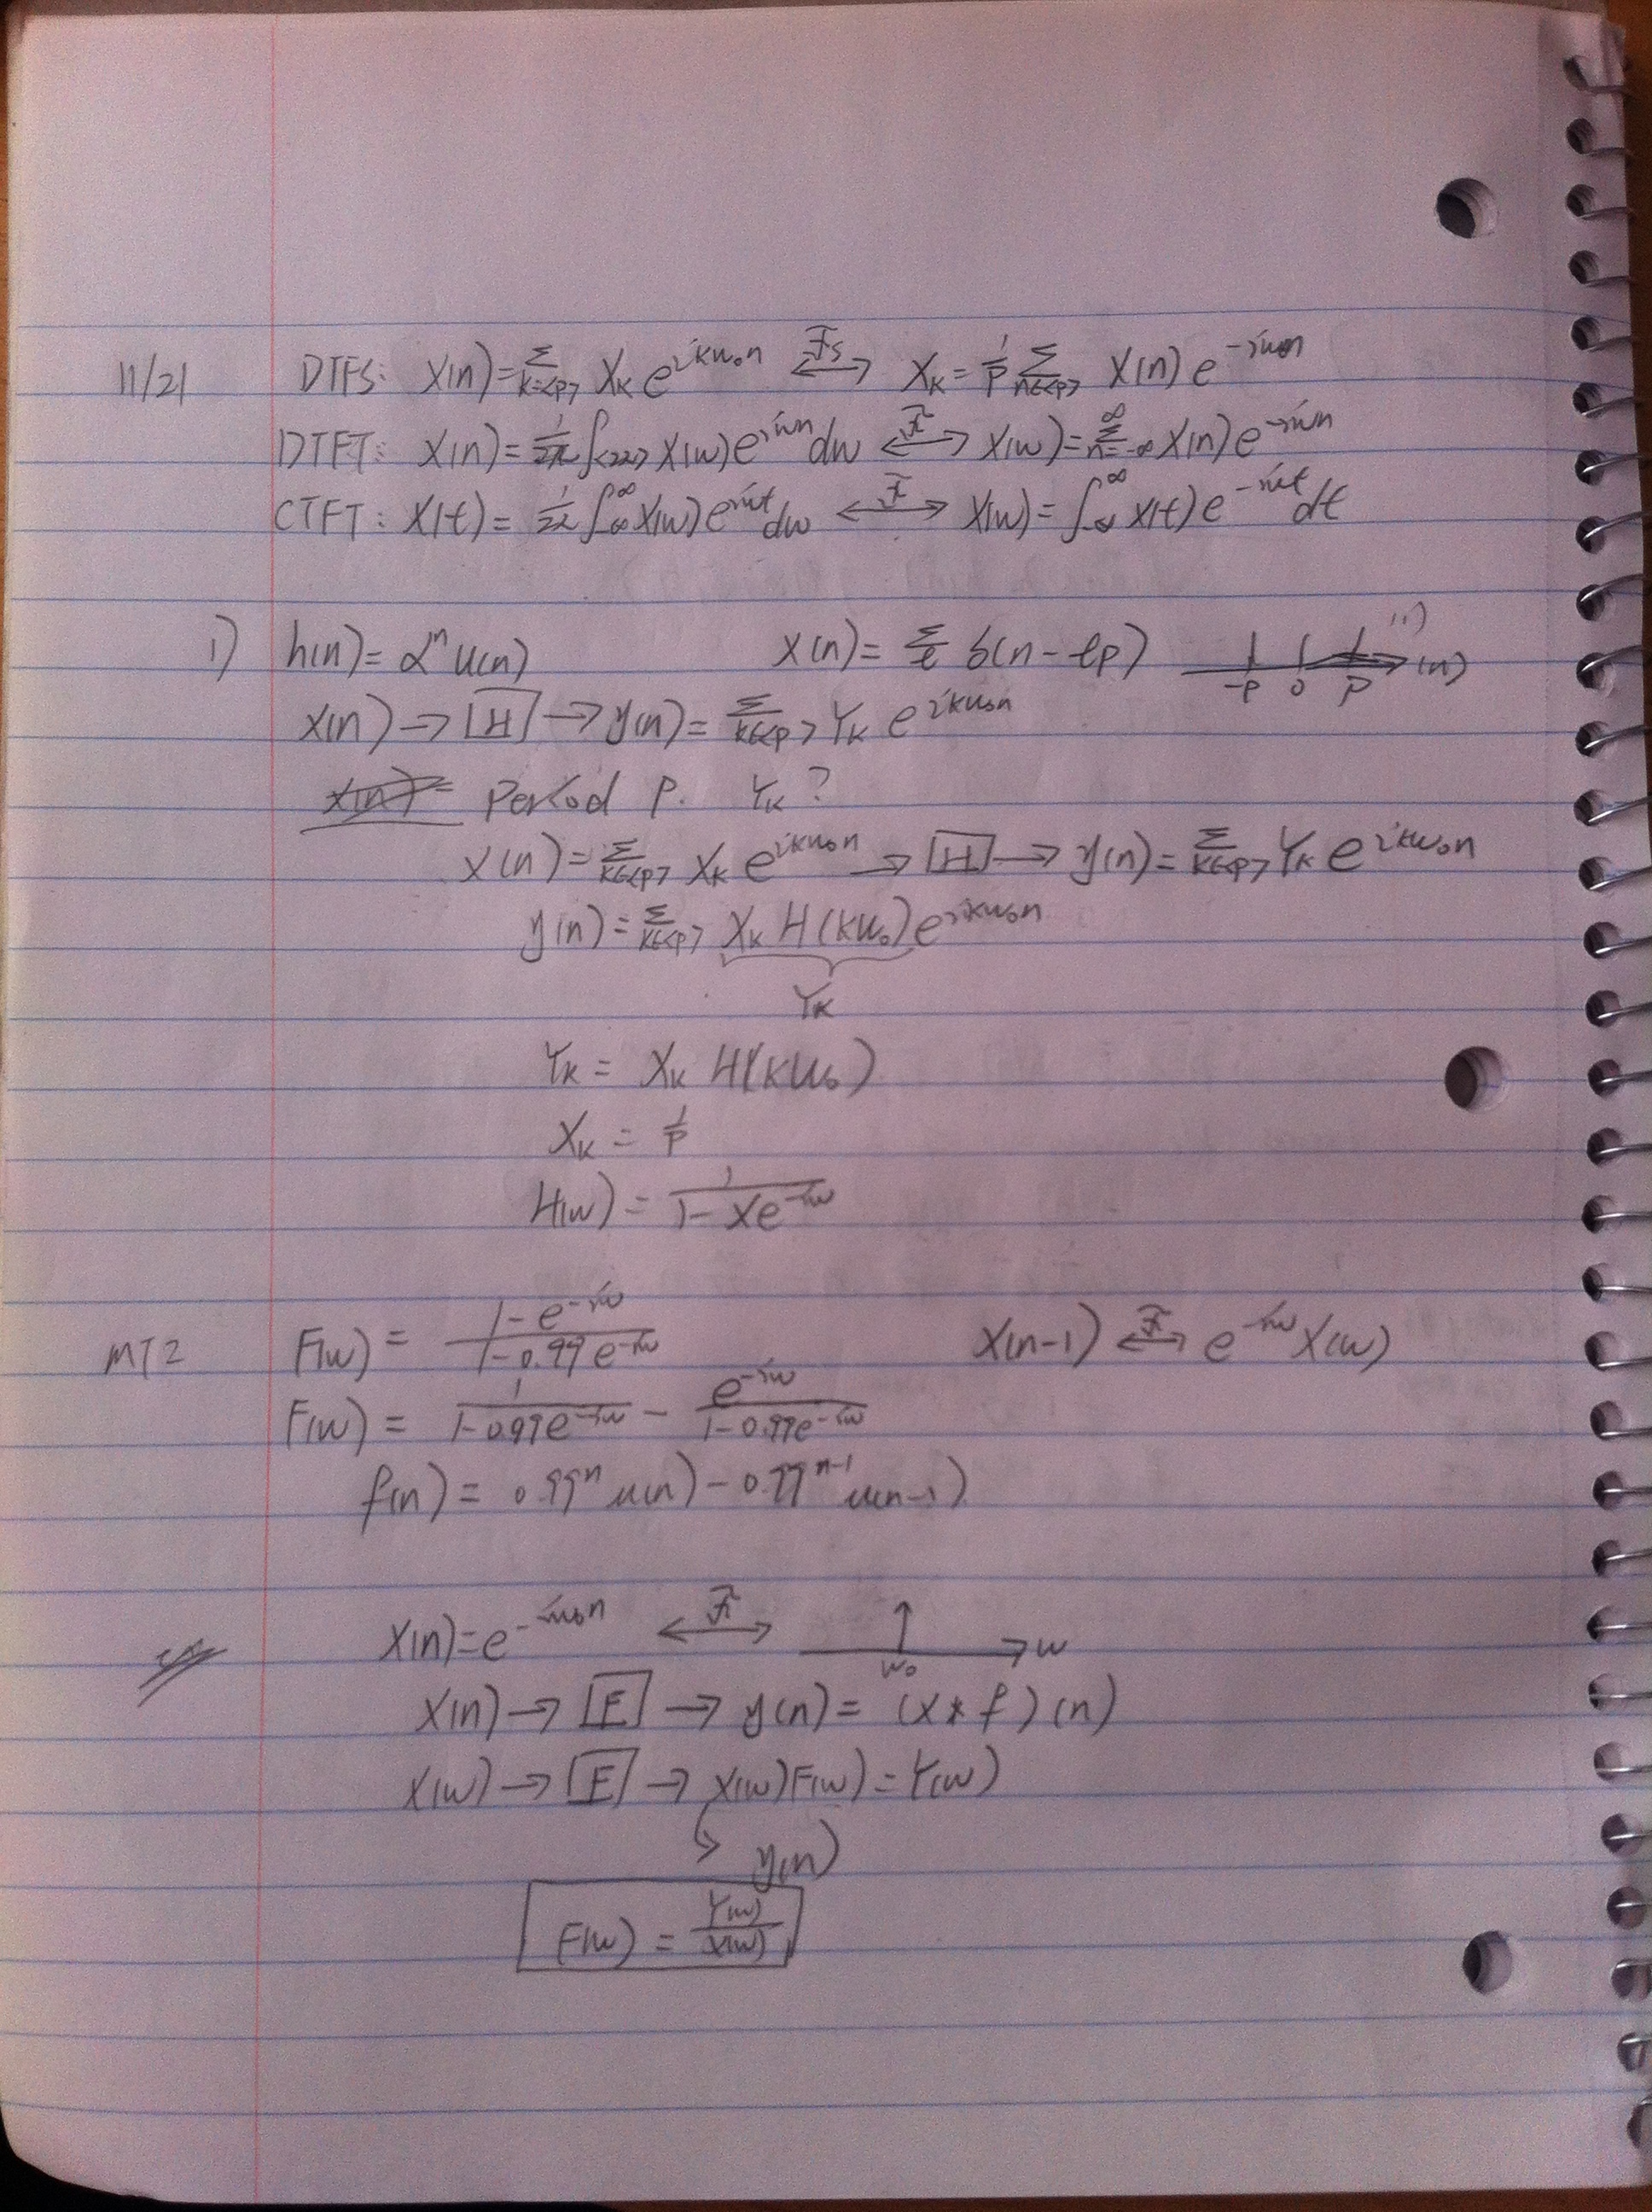 11/21 DTFS: x(n) = Σ_{k=<p>} X_k e^{ikω₀n} ⟷^{Fs} X_k = 1/p Σ_{n∈<p>} x(n) e^{-iω₀n}
DTFT: x(n) = 1/2π ∫_{<2π>} X(ω) e^{iωn} dω ⟷^{F} X(ω) = Σ_{n=-∞}^{∞} x(n) e^{-iωn}
CTFT: x(t) = 1/2π ∫_{-∞}^{∞} X(ω) e^{iωt} dω ⟷^{F} X(ω) = ∫_{-∞}^{∞} x(t) e^{-iωt} dt
1) h(n) = α^n u(n) x(n) = Σ_ℓ δ(n-ℓp) -p 0 p (n)
x(n) → [H] → y(n) = Σ_{k∈<p>} Y_k e^{ikω₀n}
x(n)= Period p. Y_k?
x(n) = Σ_{k∈<p>} X_k e^{ikω₀n} → [H] → y(n) = Σ_{k∈<p>} Y_k e^{ikω₀n}
y(n) = Σ_{k∈<p>} X_k H(kω₀) e^{ikω₀n}
Y_k
Y_k = X_k H(kω₀)
X_k = 1/p
H(ω) = 1/(1-αe^{-iω})
MT2 F(ω) = (1-e^{-iω})/(1-0.99e^{-iω}) x(n-1) ⟷^{F} e^{-iω} X(ω)
F(ω) = 1/(1-0.99e^{-iω}) - e^{-iω}/(1-0.99e^{-iω})
f(n) = 0.99^n u(n) - 0.99^{n-1} u(n-1)
x(n) = e^{-iω₀n} ⟷^{F} ω₀ ω
x(n) → [F] → y(n) = (x * f)(n)
X(ω) → [F] → X(ω)F(ω) = Y(ω)
y(n)
F(ω) = Y(ω)/X(ω)